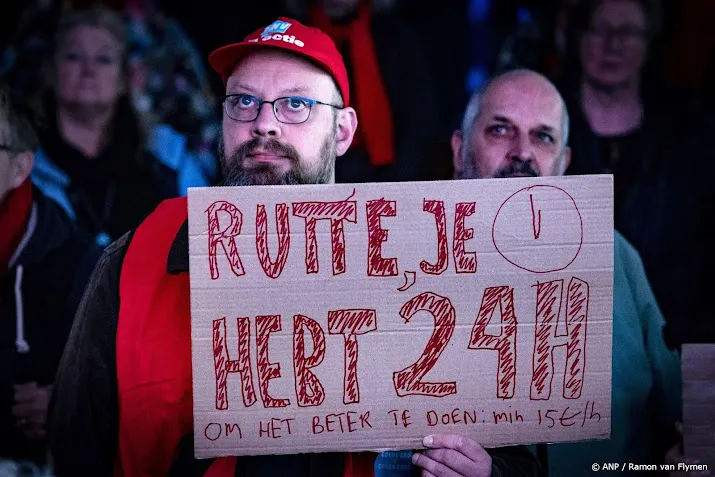 actie
RUTTE, JE
HEBT 24H
OM HET BETER TE DOEN: min 15€/h
© ANP / Ramon van Flymen